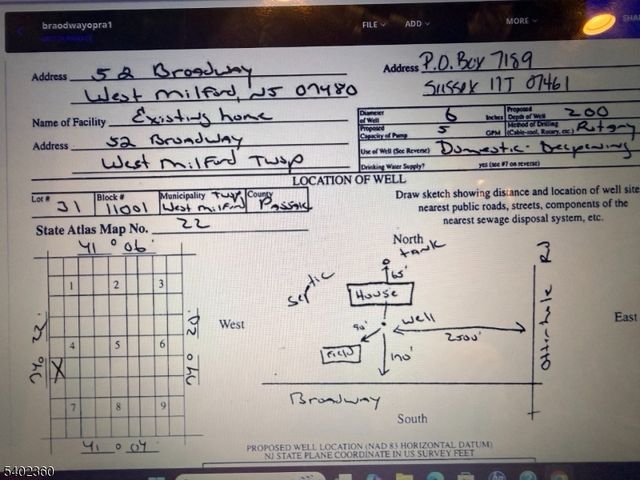 braodwayopra1
FILE
ADD
MORE
SHA
Address 52 Broadway
West Milford, NJ 07480
Address P.O. Box 7189
Sussex NJ 07461
Name of Facility Existing home
Address 52 Broadway
West Milford Twsp
Diameter of Well 6 Inches
Proposed Depth of Well 200
Proposed Capacity of Pump 5 GPM
Method of Drilling (Cable-tool, Rotary, etc.) Rotary
Use of Well (See Reverse) Domestic - Deepening
Drinking Water Supply? yes (see #7 on reverse)
LOCATION OF WELL
Lot # 31
Block # 11001
Municipality Twsp West Milford
County Passaic
State Atlas Map No. 22
Draw sketch showing distance and location of well site
nearest public roads, streets, components of the
nearest sewage disposal system, etc.
41 ° 06'
1 2 3
4 5 6
X
7 8 9
41 ° 04'
North
West
East
South
septic
tank
65'
House
well
90'
Field
2500'
170'
Broadway
Rd
PROPOSED WELL LOCATION (NAD 83 HORIZONTAL DATUM)
NJ STATE PLANE COORDINATE IN US SURVEY FEET
5402360